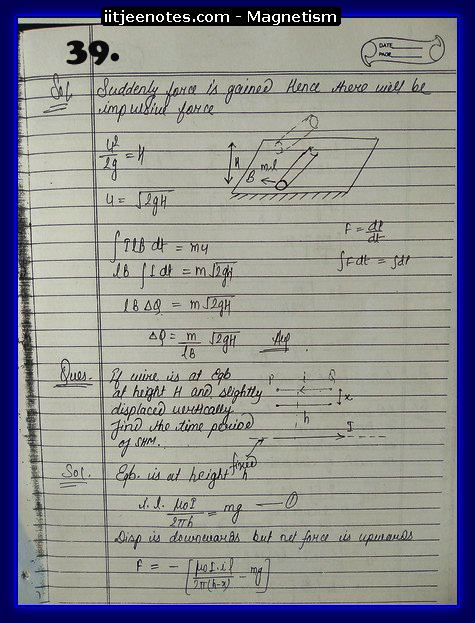 iitjeenotes.com - Magnetism
39.
DATE
PAGE
Sol. Suddenly force is gained Hence there will be
impulsive force
u²/2g = H
H
B m,l
u = √2gH
∫IlB dt = mu
F = dP/dt
lB ∫I dt = m√2gH
∫Fdt = ∫dP
lB ΔQ = m√2gH
ΔQ = m/lB √2gH Ans
Ques. If wire is at Eqb P i Q
at height H and slightly x
displaced vertically. h
Find the time period I
of SHM. fixed
Sol. Eqb. is at height h
i.l. μ₀I/2πh = mg — ①
Disp is downwards but net force is upwards
F = - [μ₀I.il/2π(h-x) - mg]